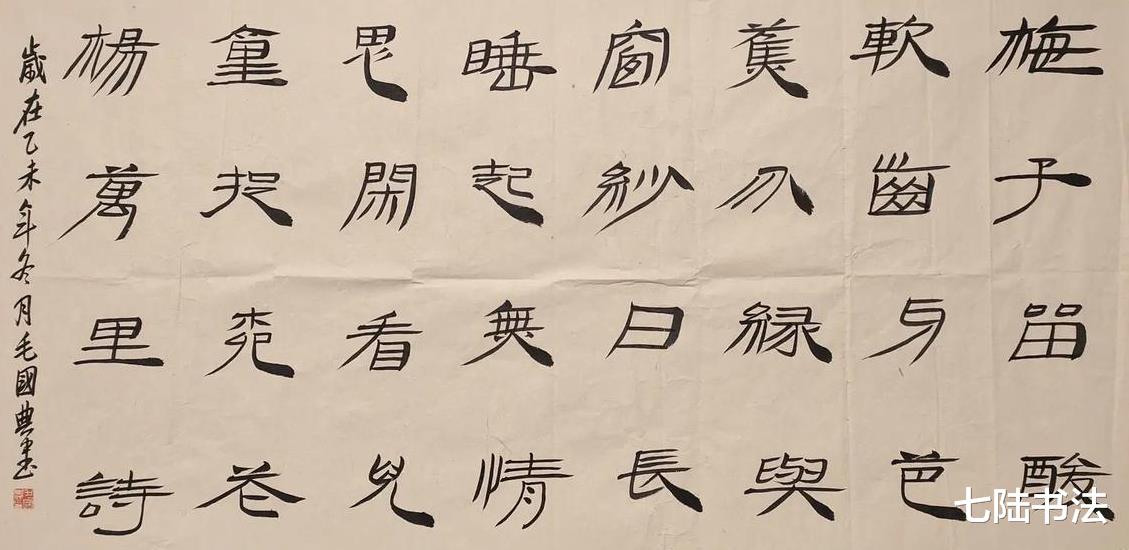 梅子留酸
軟齒牙芭
蕉分緑與
窗紗日長
睡起無情
思閑看兒
童捉柳花
楊萬里詩
歲在乙未年冬月毛國典書
七陆书法